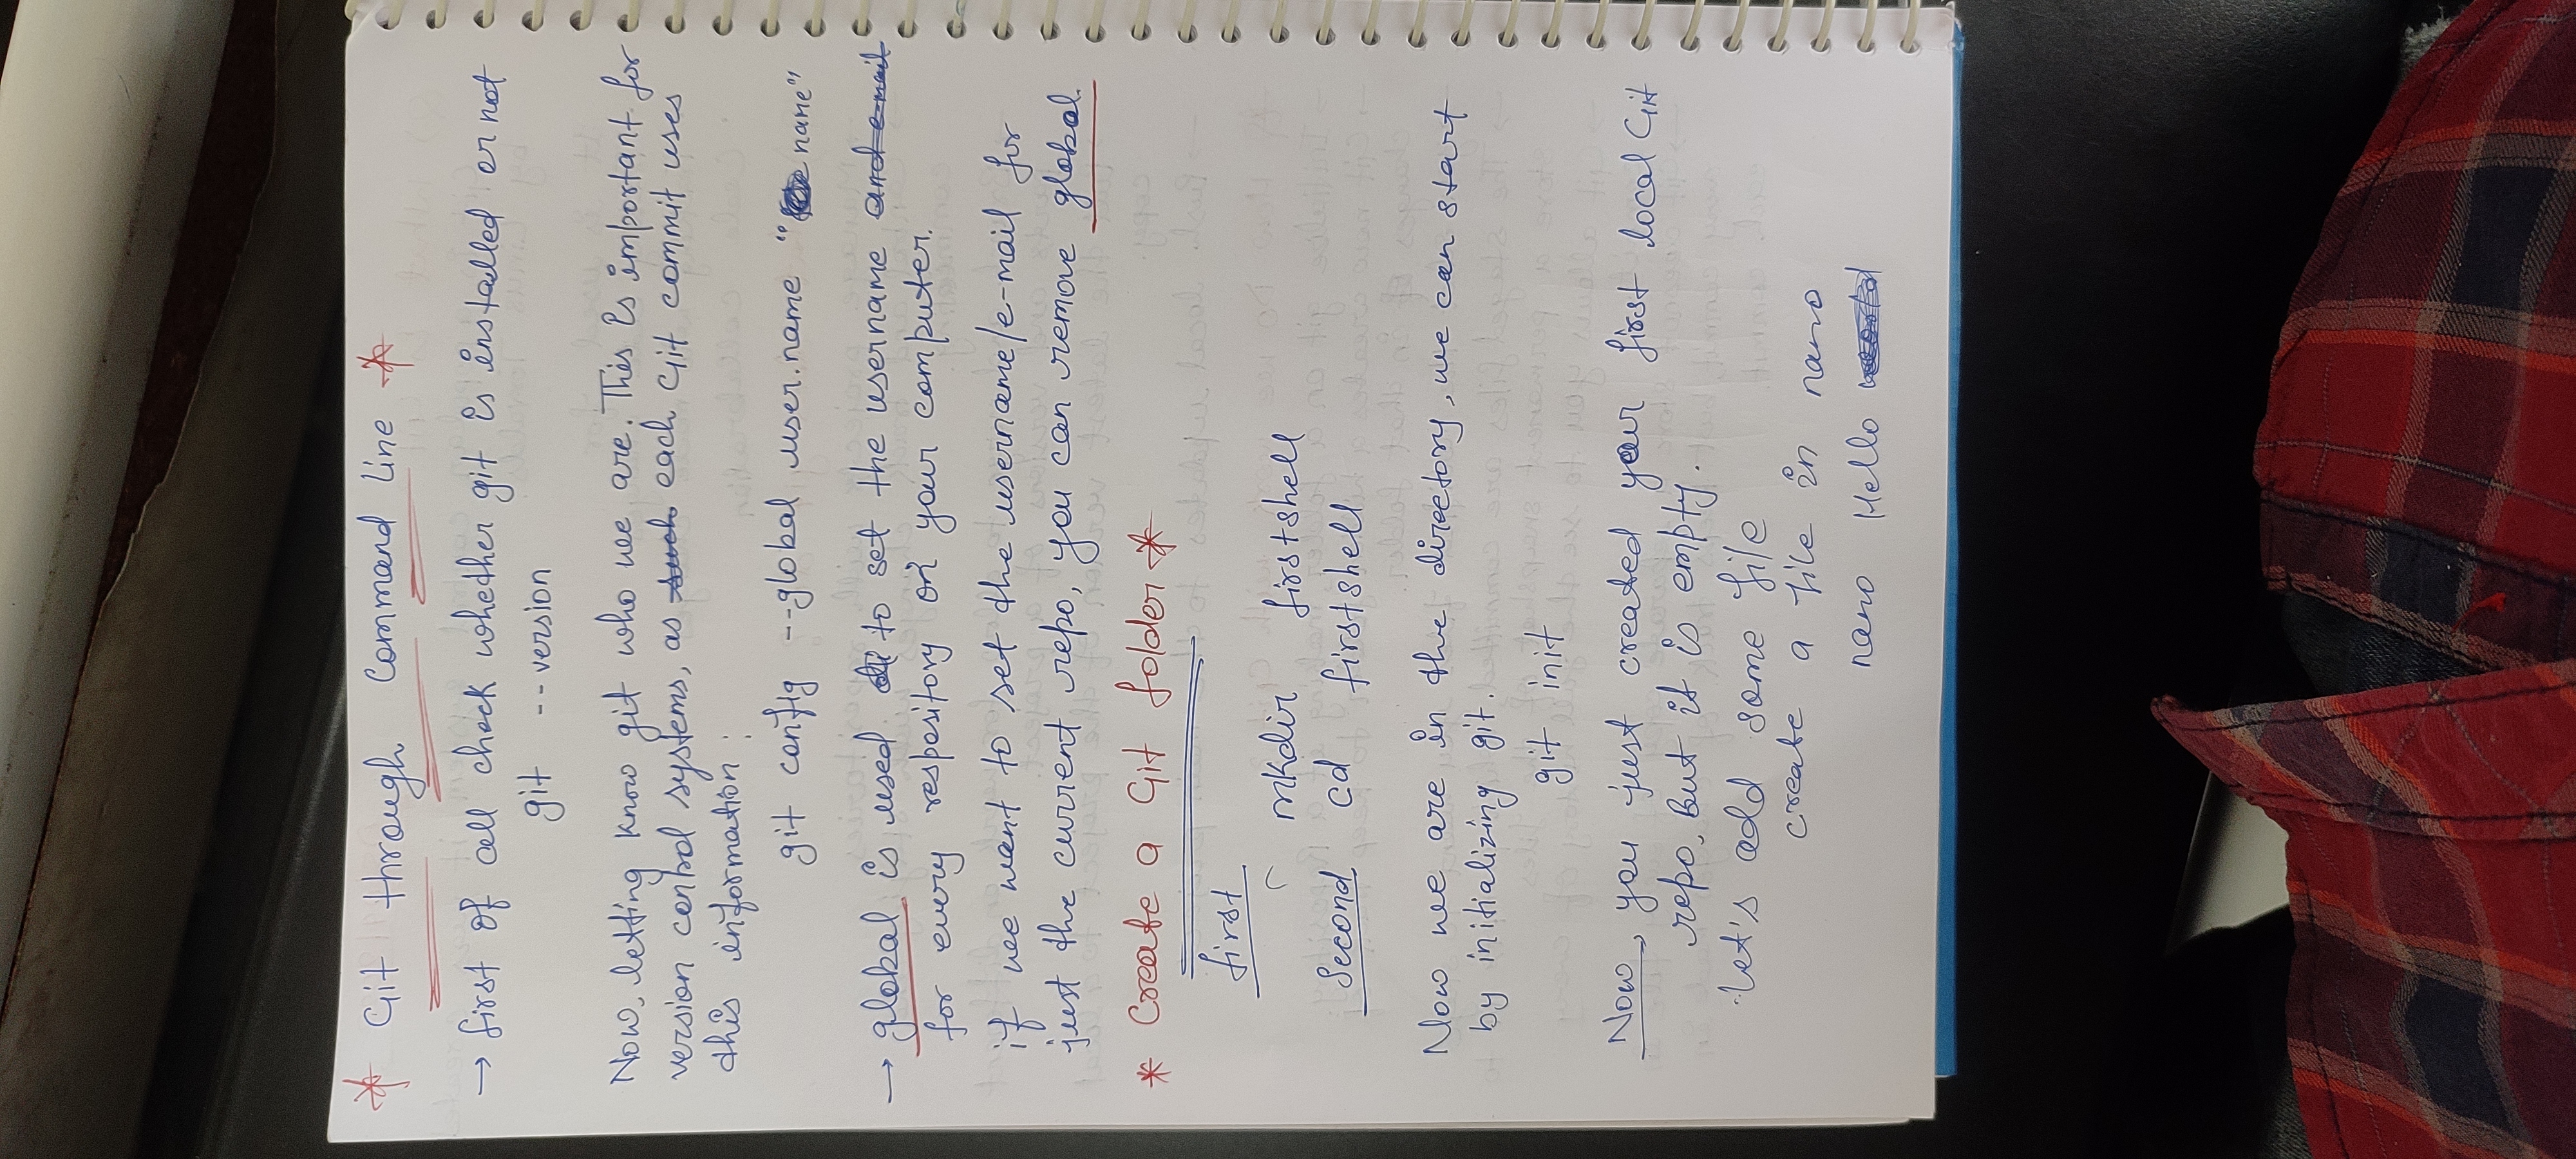 * Git through Command Line *
→ first of all check whether git is installed or not
git --version
Now, letting know git who we are. This is important for
version control systems, as such each Git commit uses
this information :
git config --global user.name "name"
→ global is used to set the username and e-mail
for every respository on your computer.
if we want to set the username/e-mail for
just the current repo, you can remove global.
* Create a Git folder *
first
mkdir firstshell
Second cd firstshell
Now we are in the directory, we can start
by initializing git.
git init
Now, you just created your first local Git
repo, But it is empty.
let's add some file
create a file in nano
nano Hello